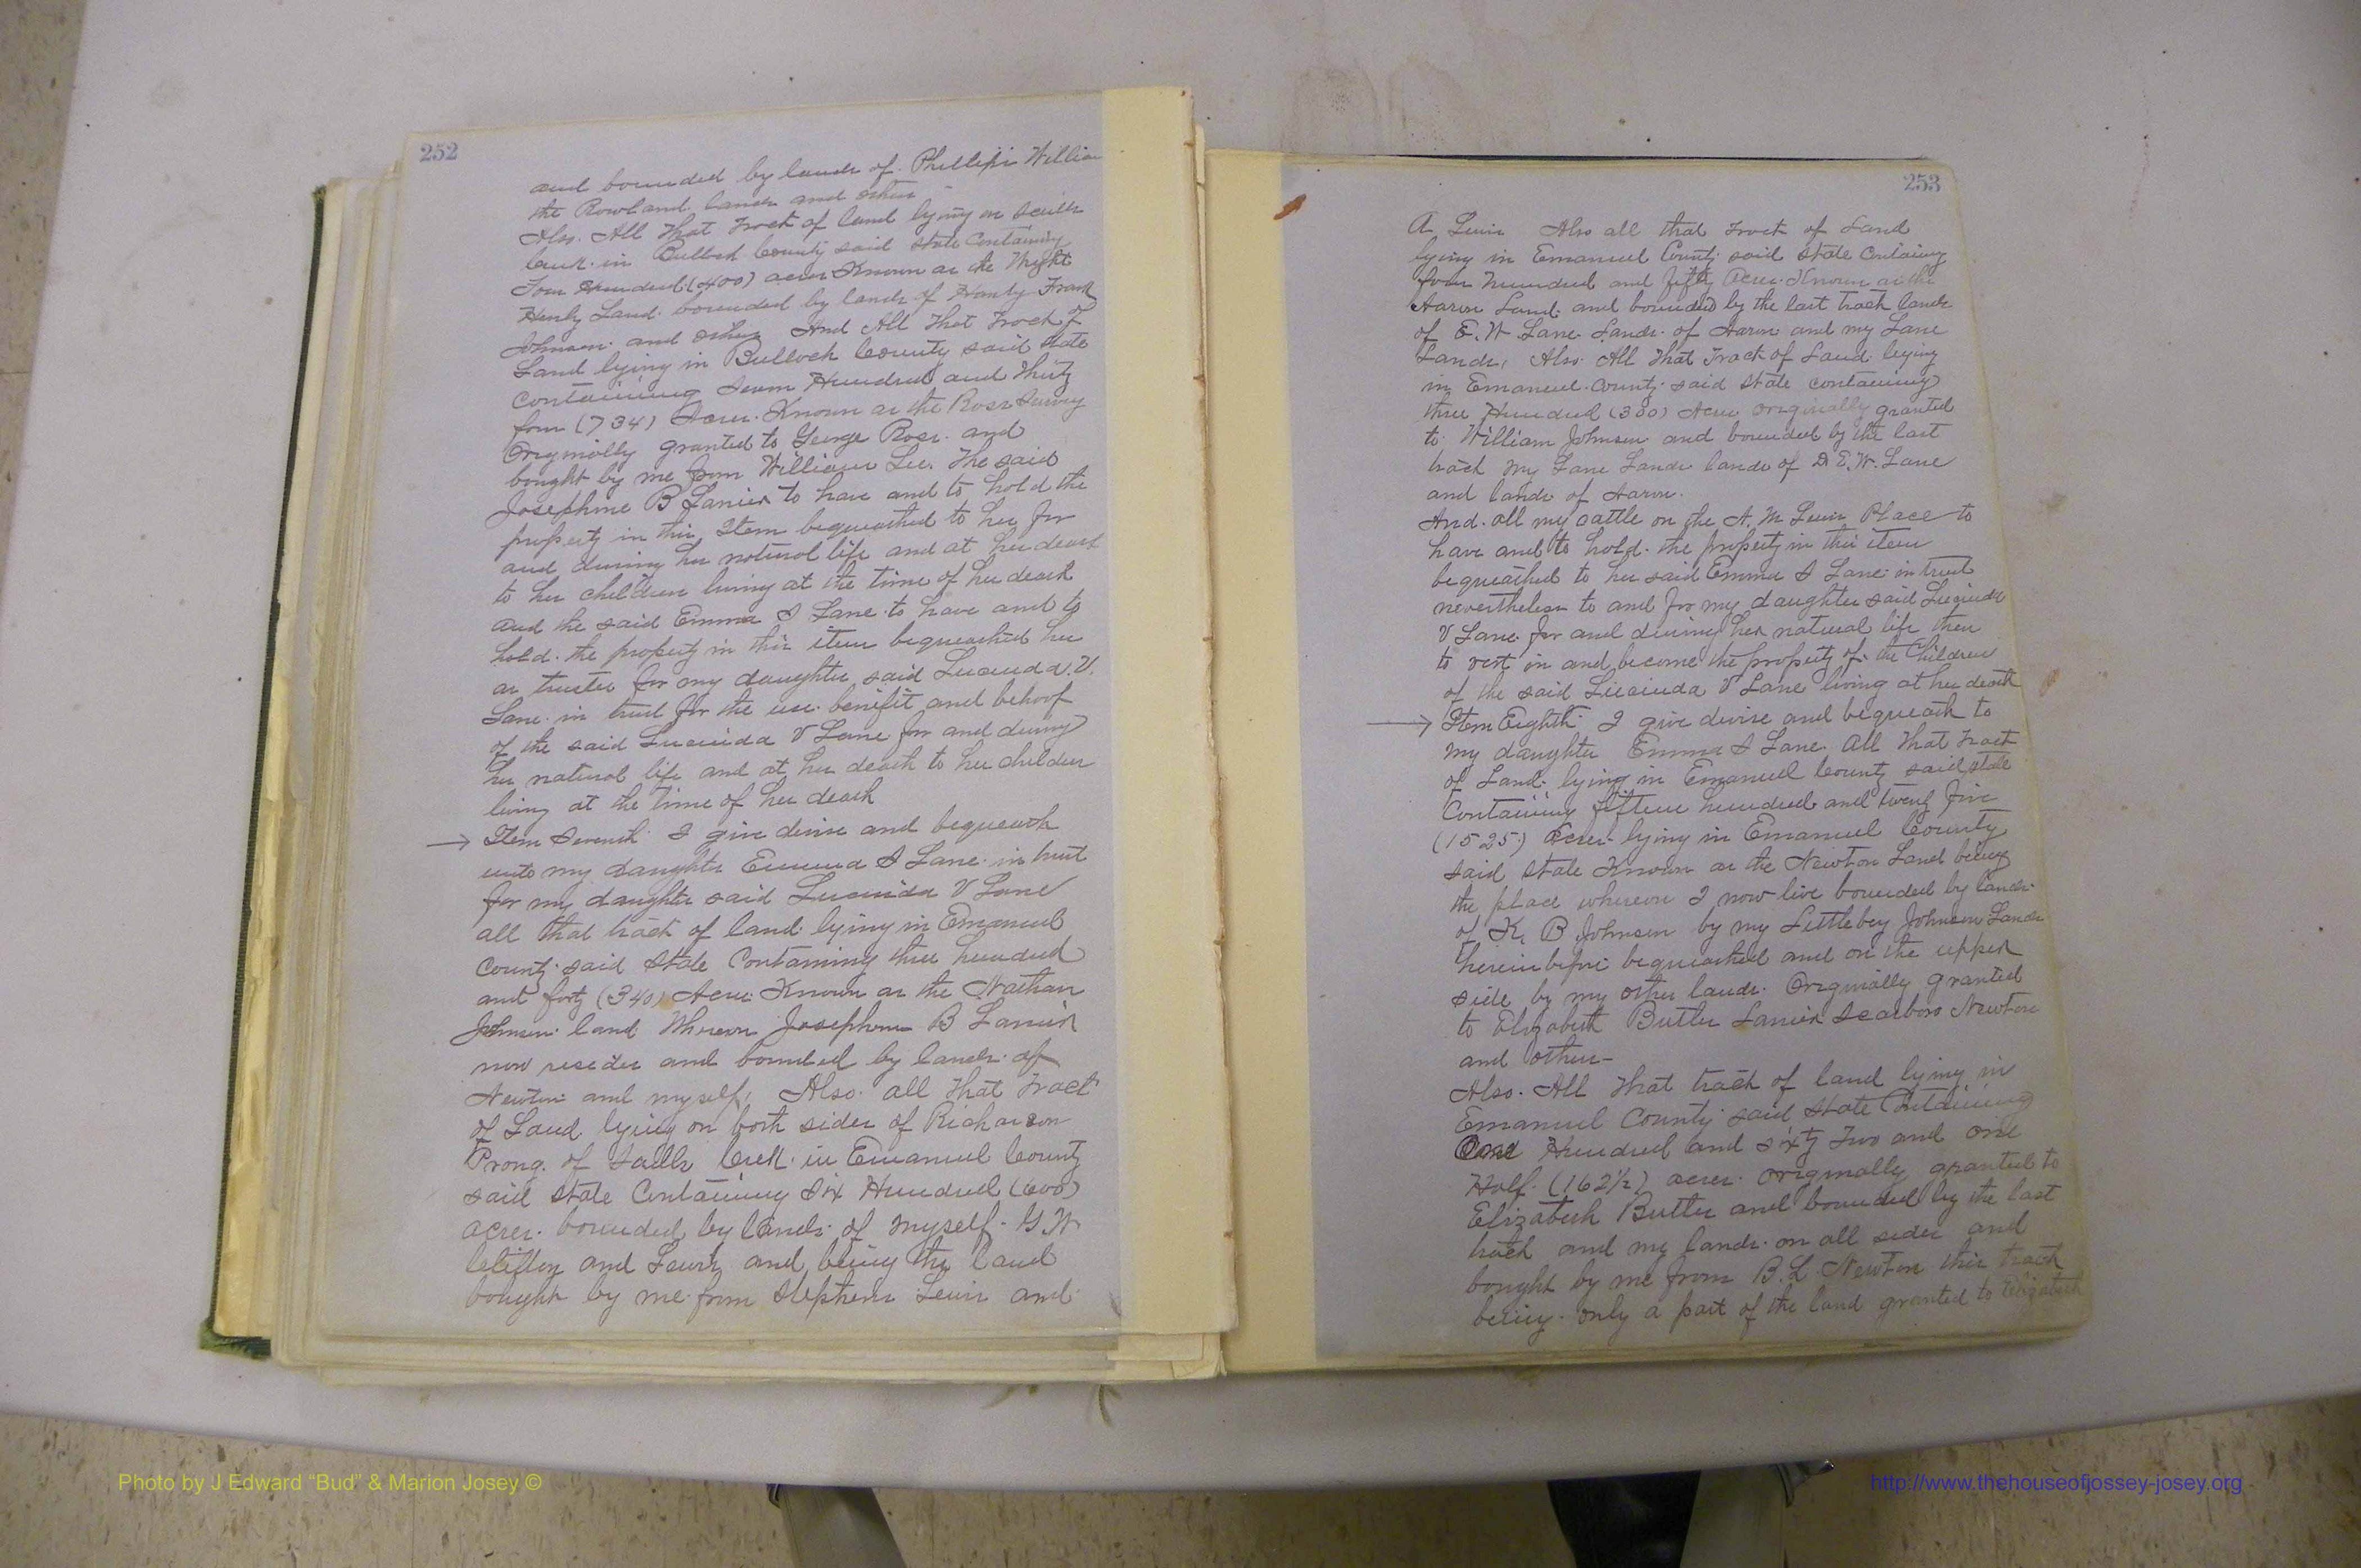 252
and bounded by lands of Phillip Willia
the Rowland lands and others
Also. All that Tract of land lying on Sculls
Creek in Bulloch County said State Containing
Four Hundred (400) acres Known as the Wright
Hendly Land bounded by lands of Handy Frank
Johnson and others And All that Tract of
Land lying in Bulloch County said State
Containing Seven Hundred and thirty
four (734) Acres. Known as the Rosr Survey
Originally granted to George Rosr. and
bought by me from William Lee. The said
Josephine B Lanier to have and to hold the
property in this Item bequeathed to her for
and during her natural life and at her death
to her children living at the time of her death
and the said Emma I Lane to have and to
hold. the property in this item bequeathed her
as trustee for my daughter said Lucinda. V.
Lane in trust for the use benefit and behoof
of the said Lucinda V Lane for and during
her natural life and at her death to her children
living at the time of her death
→ Item Seventh I give devise and bequeath
unto my daughter Emma I Lane in trust
for my daughter said Lucinda V Lane
all that track of land lying in Emanuel
County said State Containing three hundred
and forty (340) Acres Known as the Nathan
Johnson land Whereon Josephine B Lanier
now resides and bounded by lands of
Newton and myself, Also all that Tract
of Land lying on both sides of Richarson
Prong of Sculls Creek in Emanuel County
said State Containing Six Hundred (600)
acres bounded by lands of myself G W
and Lewis and being the land
bought by me from Stephen Lewis and
253
A Lewis Also all that Tract of Land
lying in Emanuel County said State Containing
four hundred and fifty Acres Known as the
Aaron Land and bounded by the last track lands
of E. W Lane Lands of Aaron and my Lane
Lands, Also All that Tract of Land lying
in Emanuel County said State containing
three Hundred (300) Acres originally granted
to William Johnson and bounded by the last
track my Lane Lands lands of D E. W. Lane
and lands of Aaron.
And all my cattle on the A. M Lewis Place to
have and to hold the property in this item
bequeathed to her said Emma I Lane in trust
nevertheless to and for my daughter said Lucinda
V Lane for and during her natural life then
to vest in and become the property of the Children
of the said Lucinda V Lane living at her death
→ Item Eighth I give devise and bequeath to
my daughter Emma I Lane All that Tract
of Land lying in Emanuel County said state
Containing fifteen hundred and twenty five
(1525) Acres lying in Emanuel County
said State Known as the Newton Land being
the place whereon I now live bounded by lands
of K. B Johnson by my Littleboy Johnson Lands
herein before bequeathed and on the upper
side by my other lands. Originally granted
to Elizabeth Butler Lanier Scarboro Newton
and others-
Also. All that track of land lying in
Emanuel County said State Containing
One Hundred and sixty Two and one
Half (162½) acres originally granted to
Elizabeth Butler and bounded by the last
track and my lands on all sides and
bought by me from B. L Newton this track
being only a part of the land granted to Elizabeth
Photo by J Edward “Bud” & Marion Josey ©
http://www.thehouseofjossey-josey.org